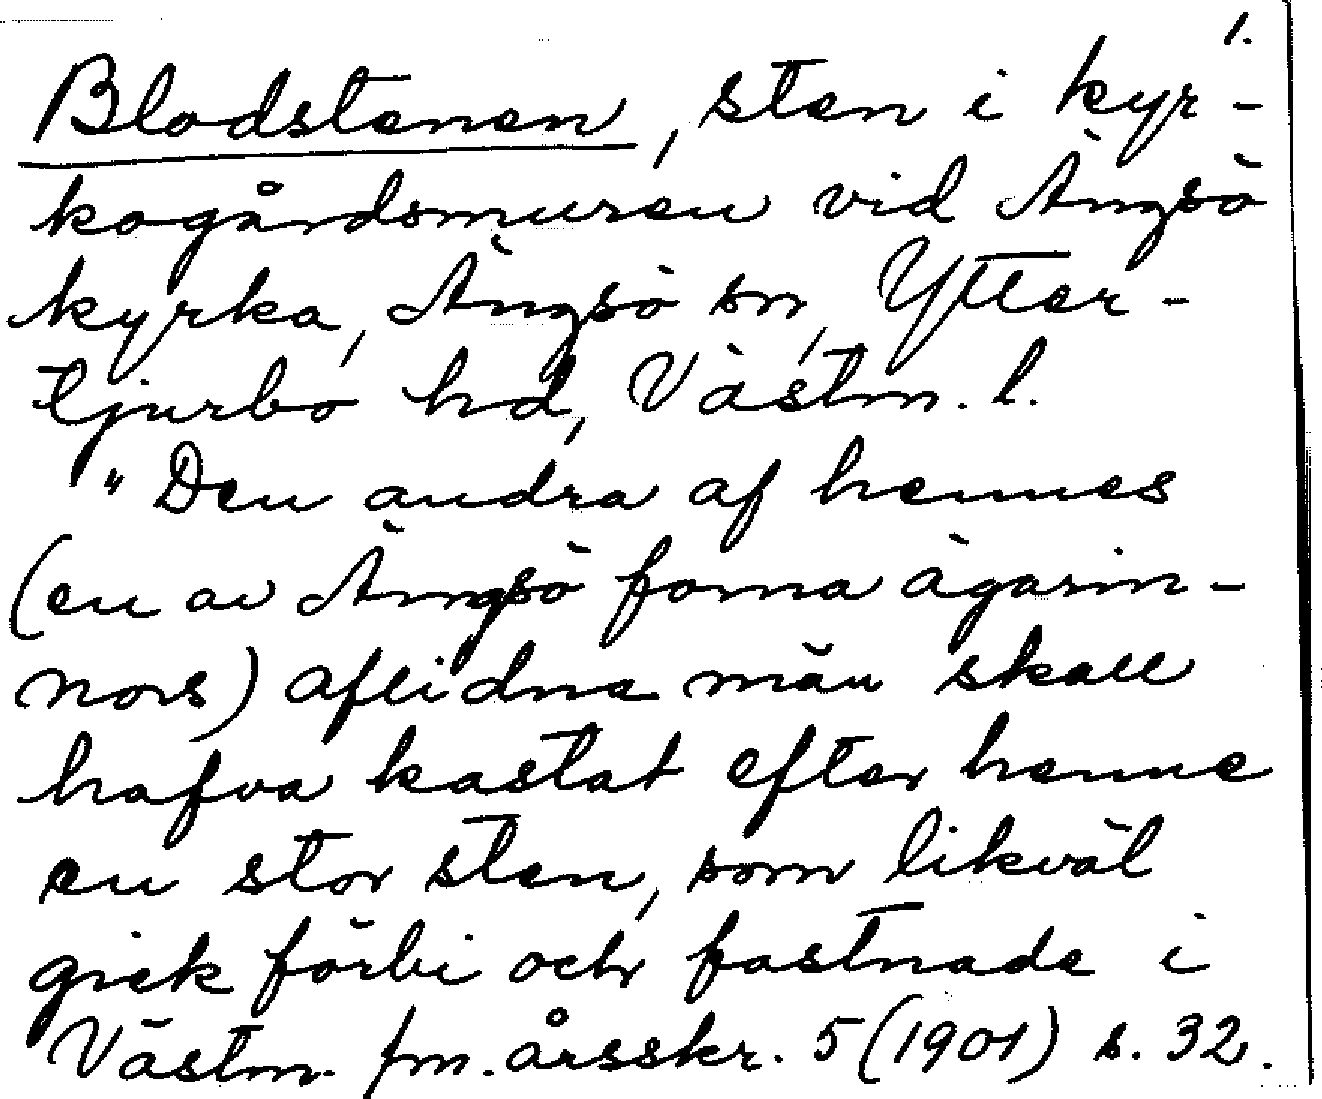 1.
Blodstenen, sten i kyr-
kogårdsmuren vid Ängsö
kyrka, Ängsö sn, Ytter-
tjurbo hd, Västm. l.
"Den andra af hennes
(en av Ängsö forna ägarin-
nors) aflidna män skall
hafva kastat efter henne
en stor sten, som likväl
gick förbi och fastnade i
Västm. fm. årsskr. 5 (1901) s. 32.